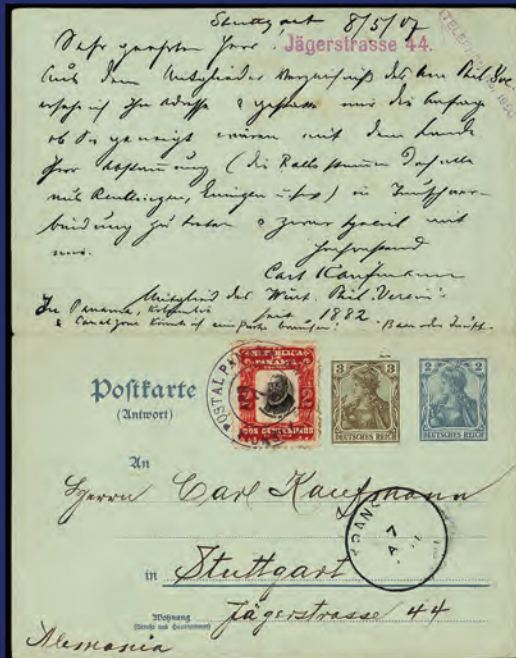 Stuttgart 8/5/07
Jägerstrasse 44.
Sehr geehrter Herr
Aus dem Mitglieder Verzeichniß des Am Phil. Soc.
ersehe ich Ihre Adresse & gestatte mir die Anfrage
ob Sie geneigt wären mit dem Lande
Ihrer Abstammung (die
aus Reutlingen, in Tauschver-
bindung zu treten & zwar speciell mit
mir.
Hochachtend
Carl Kaufmann
Mitglied des Württ. Phil. Vereins
seit 1882
In Panama,
& Canalzone könnte ich brauchen! Baar oder Tausch.
Postkarte
(Antwort)
REPUBLICA
PANAMA
2
2
DOS CENTESIMOS
POSTAL
3
3
DEUTSCHES REICH
2
2
DEUTSCHES REICH
An
Herrn Carl Kaufmann
in Stuttgart
Wohnung
(Straße und Hausnummer)
Jägerstrasse 44
Alemania